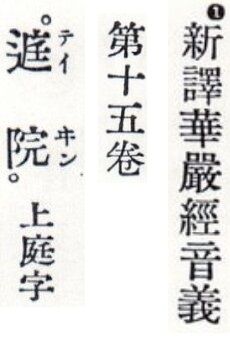 ❶新譯華嚴經音義
第十五卷
院。上庭字
テイ
ヰン